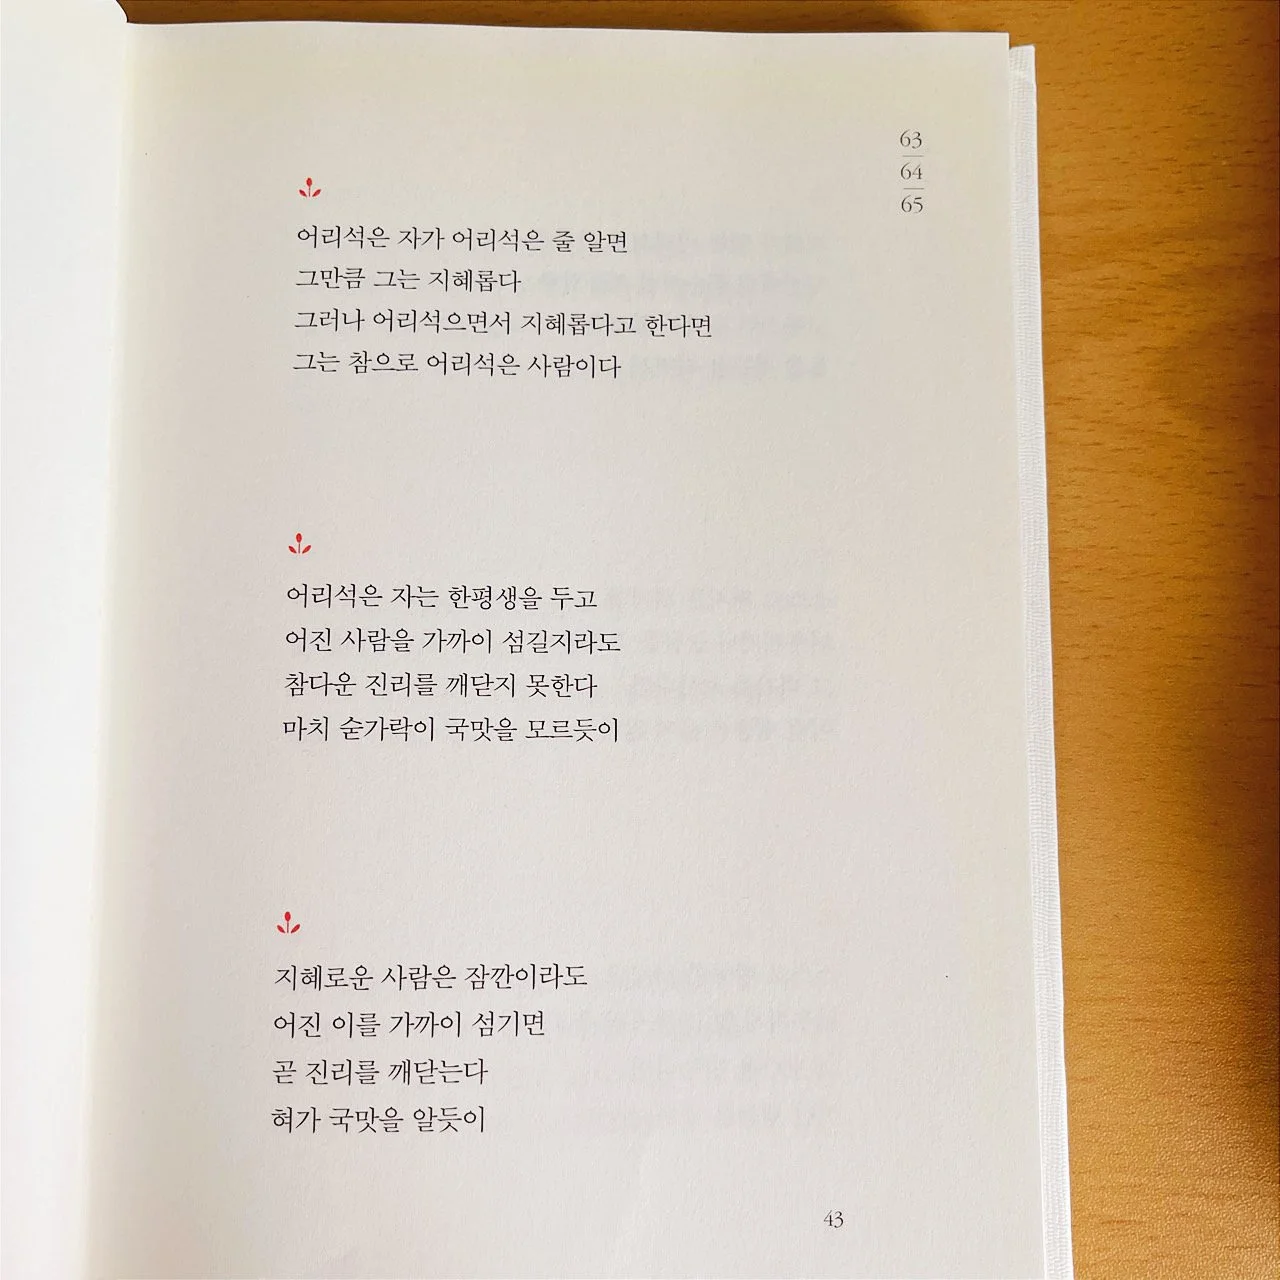 63
64
65
어리석은 자가 어리석은 줄 알면
그만큼 그는 지혜롭다
그러나 어리석으면서 지혜롭다고 한다면
그는 참으로 어리석은 사람이다
어리석은 자는 한평생을 두고
어진 사람을 가까이 섬길지라도
참다운 진리를 깨닫지 못한다
마치 숟가락이 국맛을 모르듯이
지혜로운 사람은 잠깐이라도
어진 이를 가까이 섬기면
곧 진리를 깨닫는다
혀가 국맛을 알듯이
43